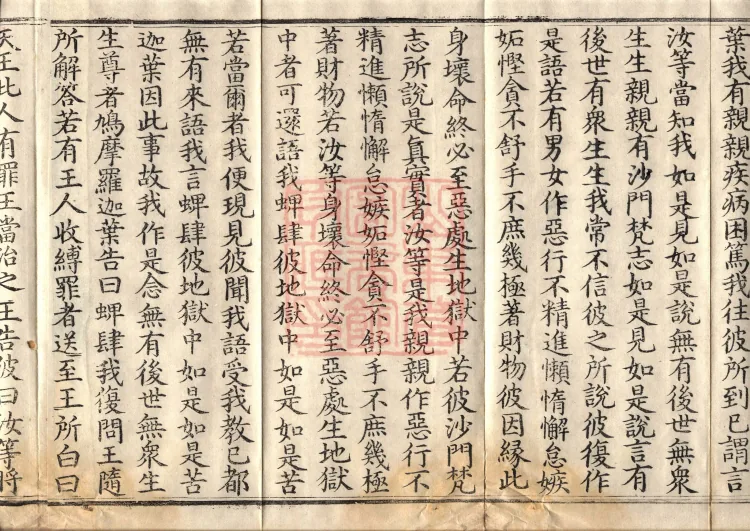 葉我有親親疾病困篤我往彼所到已謂言
汝等當知我如是見如是說無有後世無衆
生生親親有沙門梵志如是見如是說言有
後世有衆生生我常不信彼之所說彼復作
是語若有男女作惡行不精進懶惰懈怠嫉
妬慳貪不舒手不庶幾極著財物彼因緣此
身壞命終必至惡處生地獄中若彼沙門梵
志所說是真實者汝等是我親親作惡行不
精進懶惰懈怠嫉妬慳貪不舒手不庶幾極
著財物若汝等身壞命終必至惡處生地獄
中者可還語我蜱肆彼地獄中如是如是苦
若當爾者我便現見彼聞我語受我教已都
無有來語我言蜱肆彼地獄中如是如是苦
迦葉因此事故我作是念無有後世無衆生
生尊者鳩摩羅迦葉告曰蜱肆我復問王隨
所解答若有王人收縛罪者送至王所白曰
天王此人有罪王當治之王告彼曰汝等將